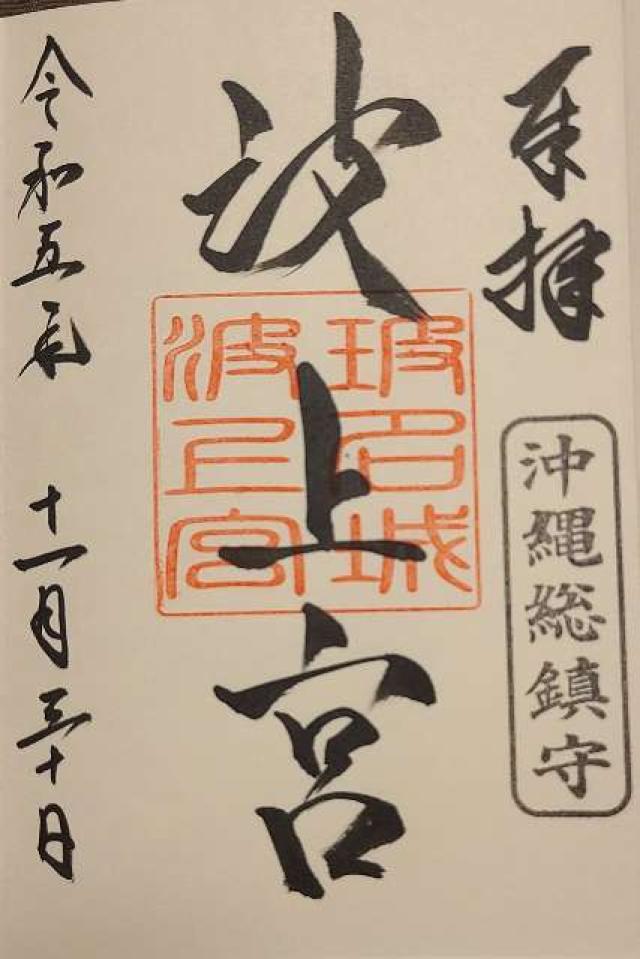 奉拝
沖縄総鎮守
波上宮
玻名城
波上宮
令和五年 十一月三十日